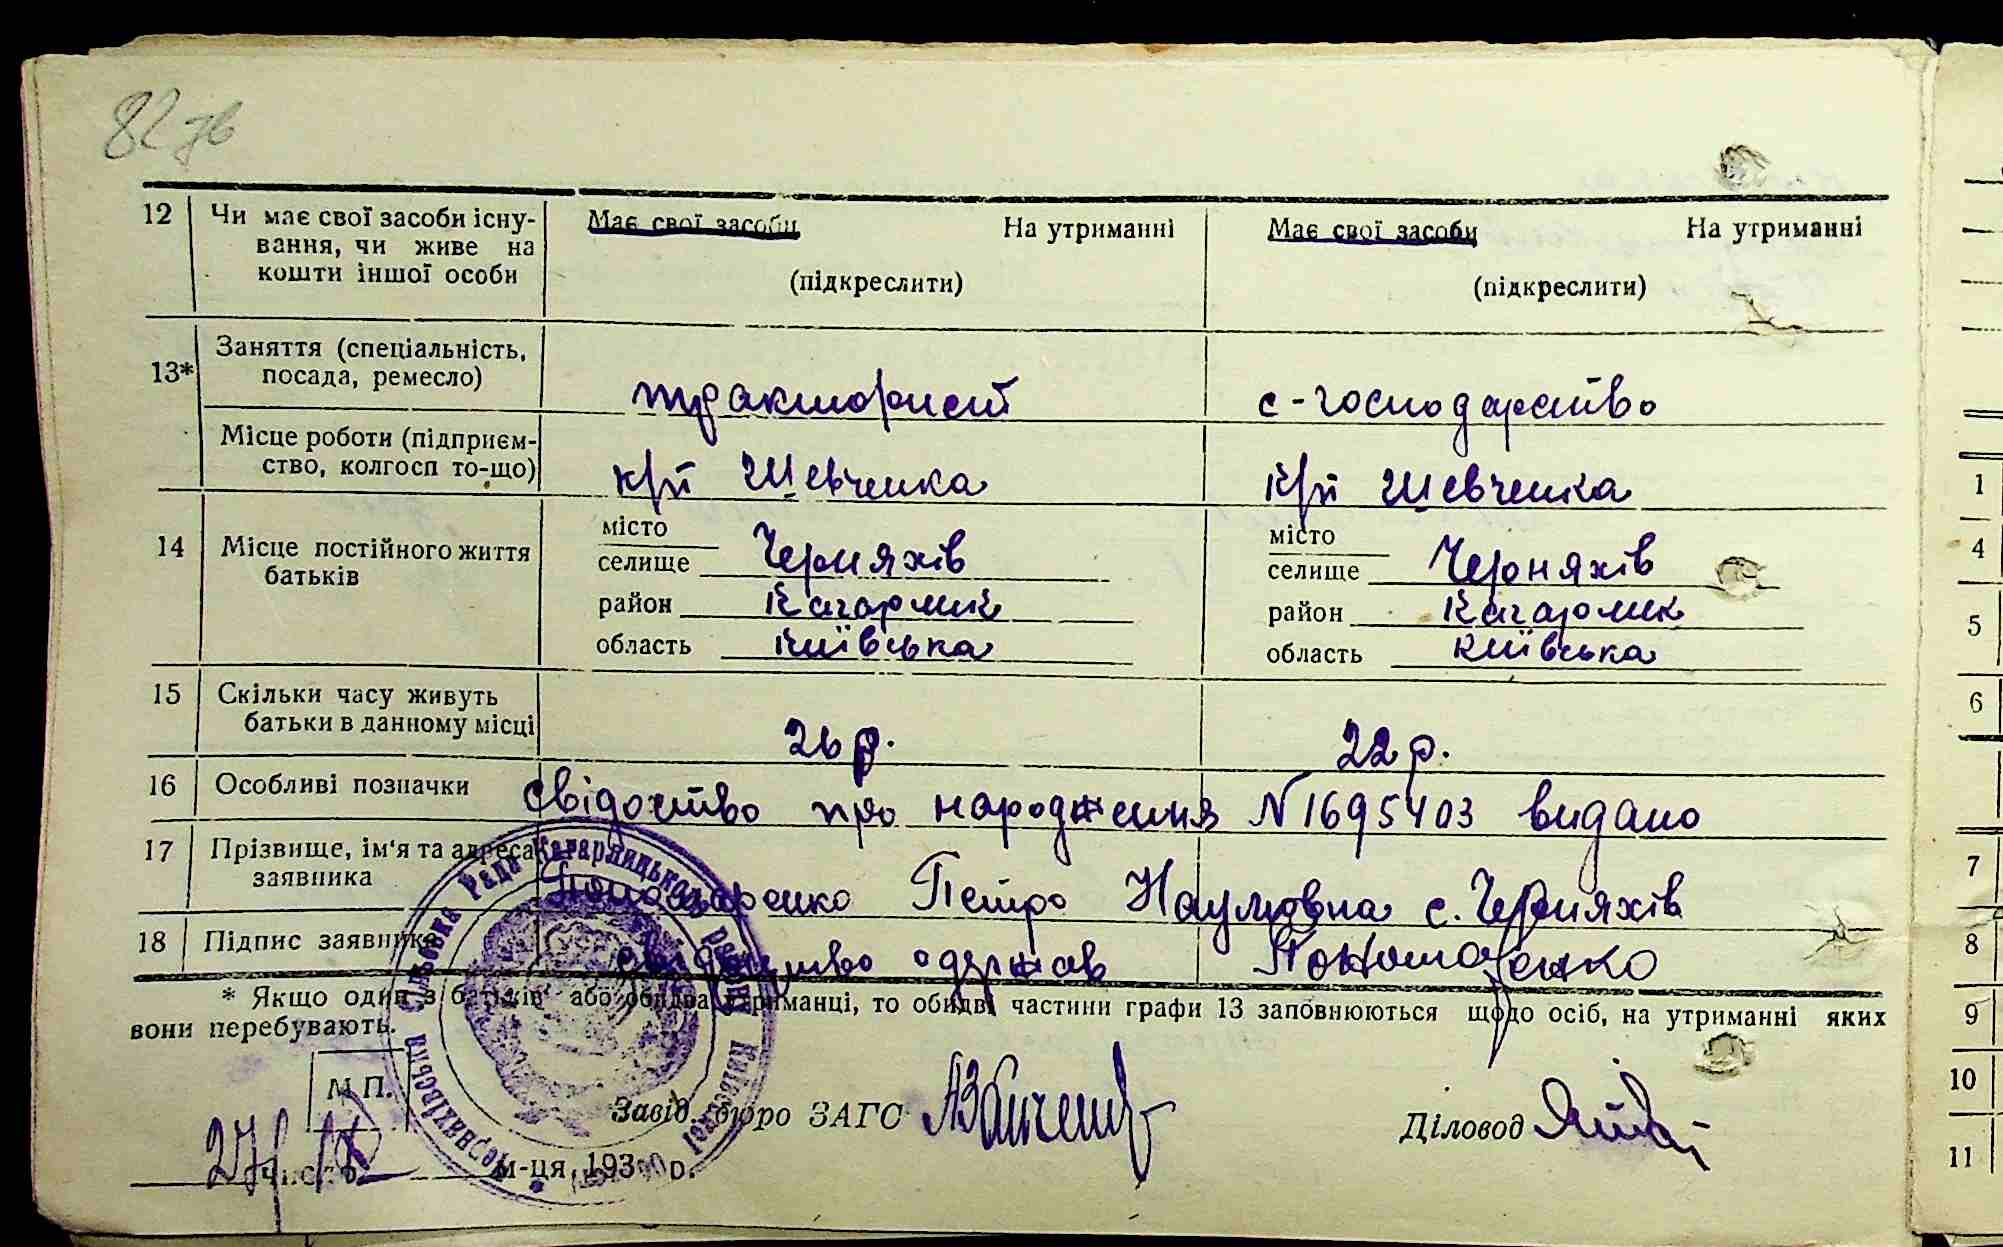 82 зв
12 Чи має свої засоби існу- Має свої засоби На утриманні Має свої засоби На утриманні
вання, чи живе на
кошти іншої особи (підкреслити) (підкреслити)
13* Заняття (спеціальність,
посада, ремесло) тракторист с-господарство
Місце роботи (підприєм-
ство, колгосп то-що) к/гп Шевченка к/гп Шевченка
14 Місце постійного життя місто місто
батьків селище Черняхів селище Черняхів
район Кагарлик район Кагарлик
область Київська область Київська
15 Скільки часу живуть
батьки в данному місці 26 р. 22 р.
16 Особливі позначки свідоцтво про народження N 1695403 видано
17 Прізвище, ім'я та адреса
заявника Пономаренко Петро Наумовна с. Черняхів
18 Підпис заявника свідоцтво одержав Пономаренко
* Якщо один з батьків або обидва утриманці, то обидві частини графи 13 заповнюються щодо осіб, на утриманні яких
вони перебувають.
М.П.
Завід. бюро ЗАГС Діловод
27/ число м-ця, 193 р.
Черняхівська Сільська Рада Кагарлицького району Київської
1
4
5
6
7
8
9
10
11